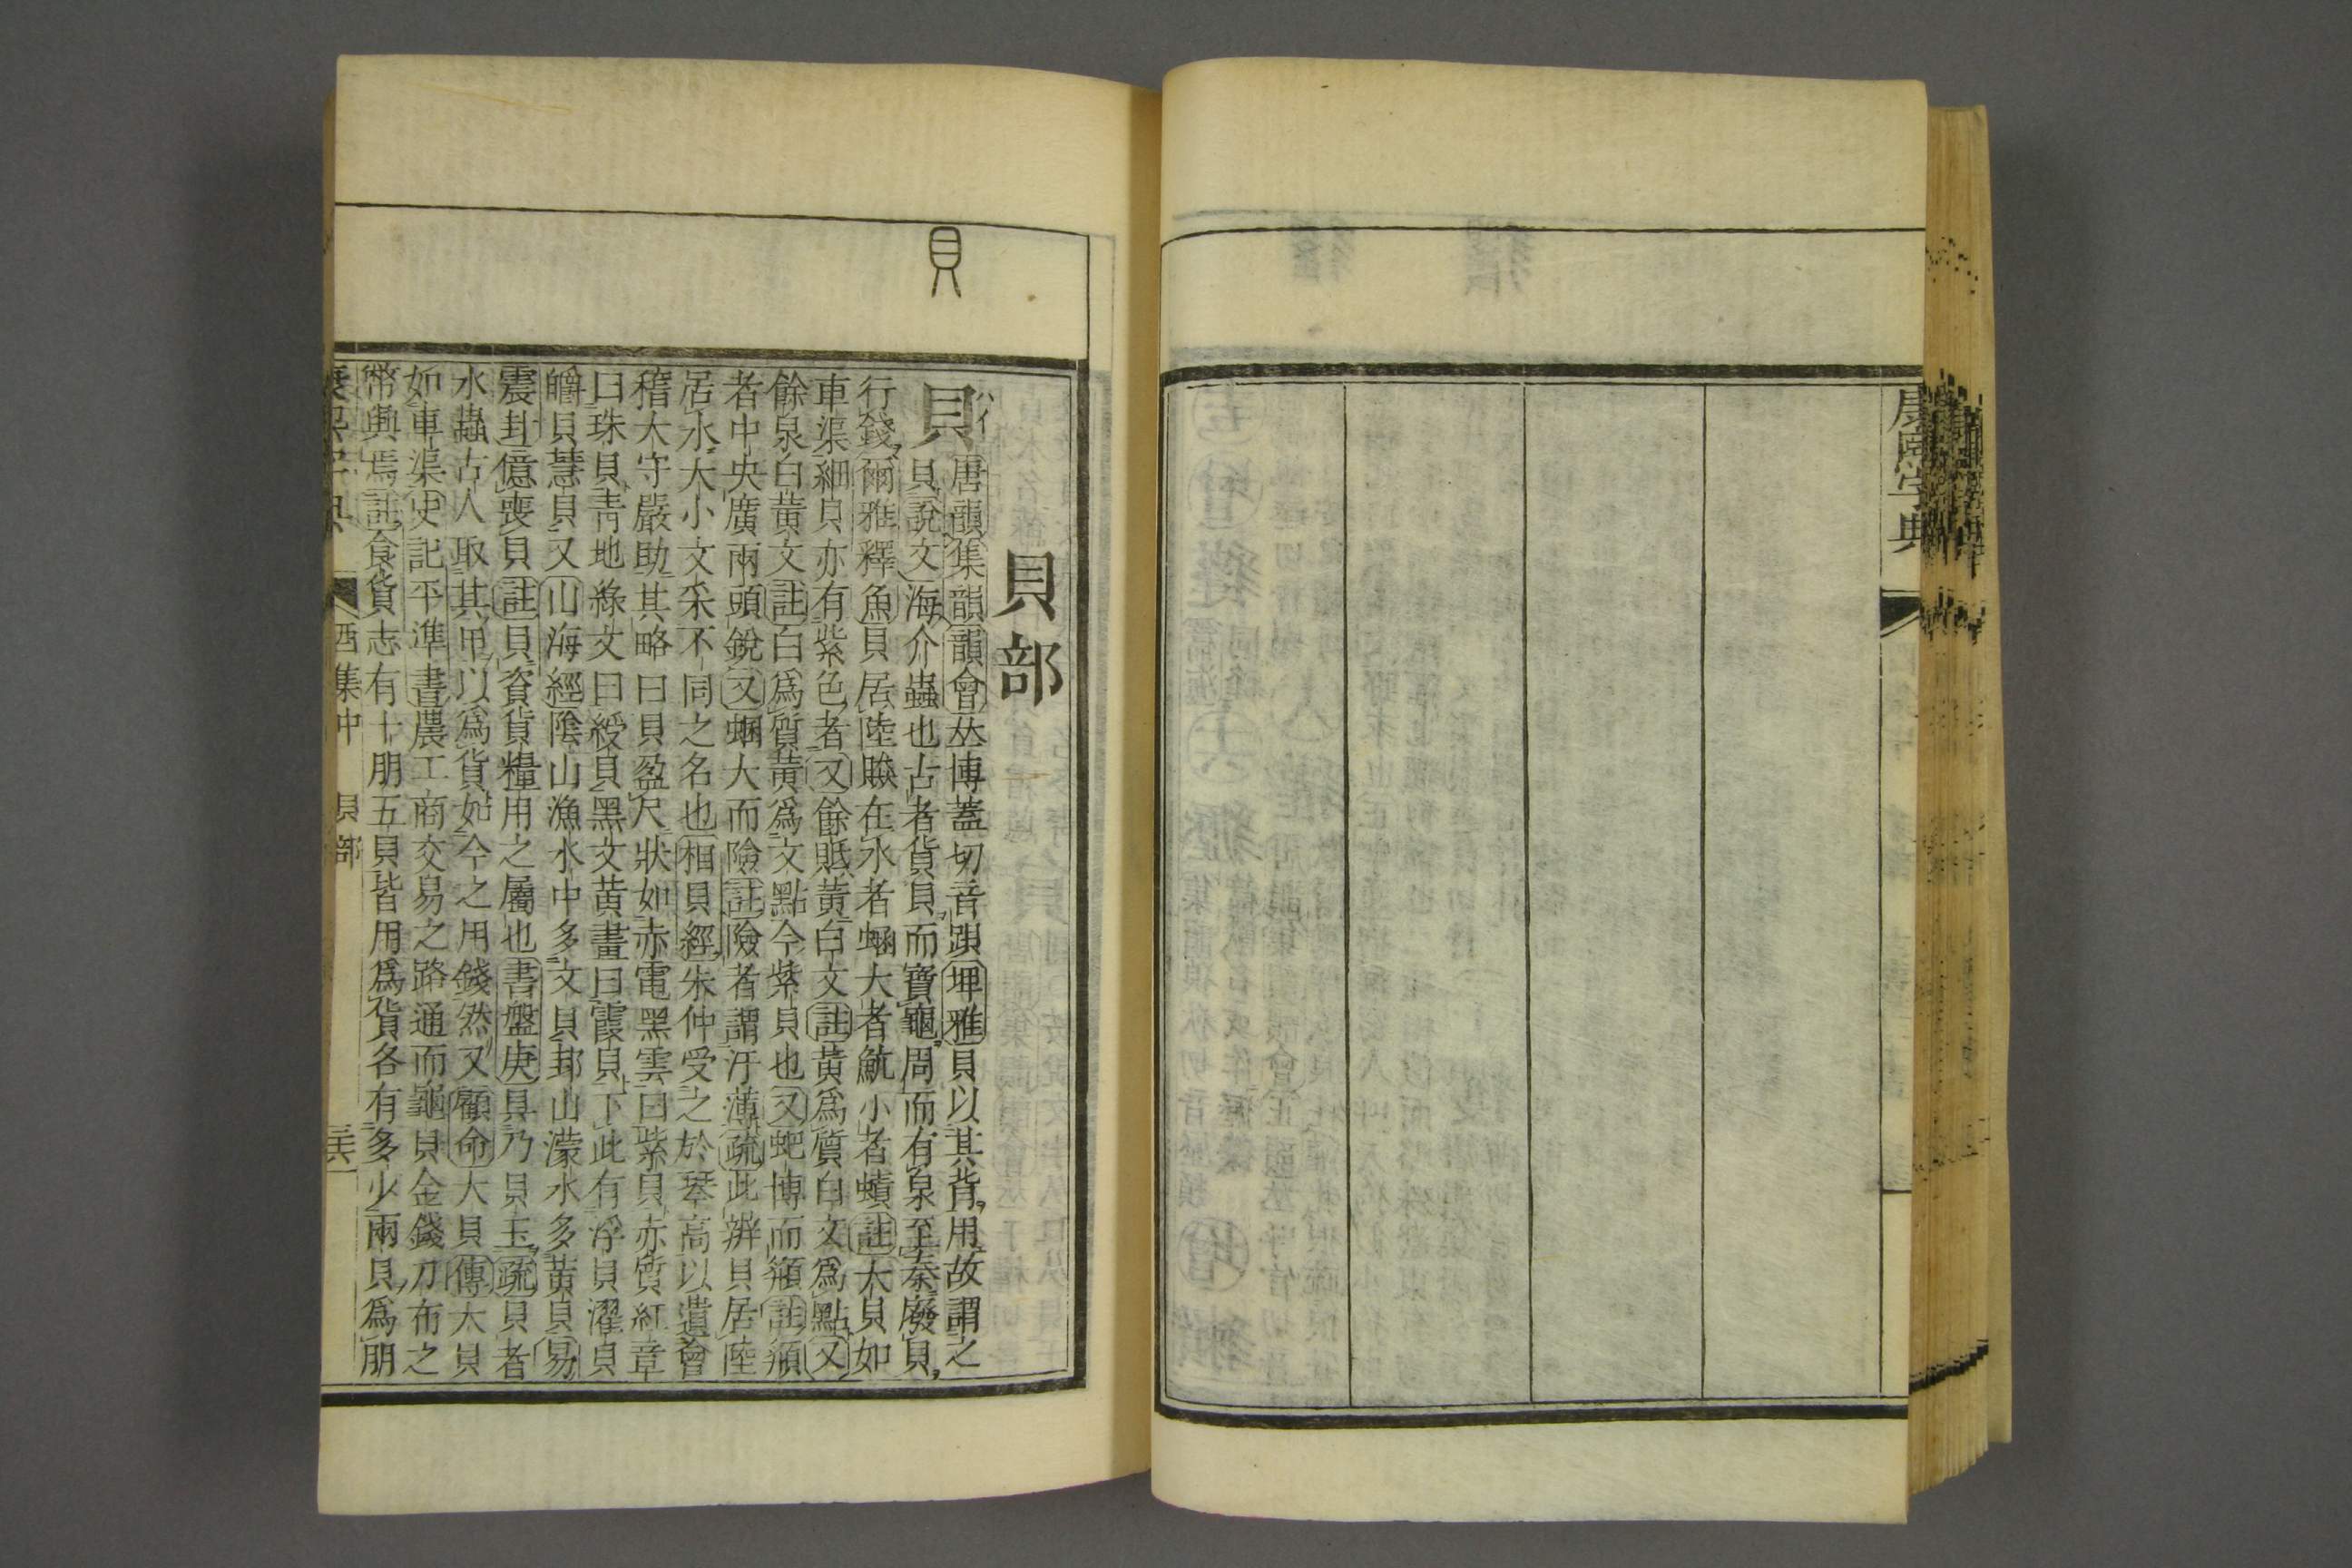 康熙字典
貝
貝部
貝
ハイ
唐韻集韻韻會𠀤博蓋切音跟埤雅貝以其背用故謂之
貝說文海介蟲也古者貨貝而寶龜周而有泉至秦廢貝
行錢爾雅釋魚貝居陸贆在水者蜬大者魧小者鰿註大貝如
車渠細貝亦有紫色者又餘貾黃白文註黃爲質白文爲點又
餘泉白黃文註白爲質黃爲文點今紫貝也又蚆博而頯註頯
者中央廣兩頭銳又蜠大而險註險者謂汙薄疏此辨貝居陸
居水大小文采不同之名也相貝經朱仲受之於琴高以遺會
稽大守嚴助其略曰貝盈尺狀如赤電黑雲曰紫貝赤質紅章
曰珠貝靑地綠文曰綬貝黑文黃畫曰霞貝下此有浮貝濯貝
皭貝慧貝又山海經陰山漁水中多文貝邽山濛水多黃貝易
震卦億喪貝註貝資貨糧用之屬也書盤庚具乃貝玉疏貝者
水蟲古人取其甲以爲貨如今之用錢然又顧命大貝傳大貝
如車渠史記平準書農工商交易之路通而龜貝金錢刀布之
幣興焉註食貨志有十朋五貝皆用爲貨各有多少兩貝爲朋
康熙字典 酉集中 貝部